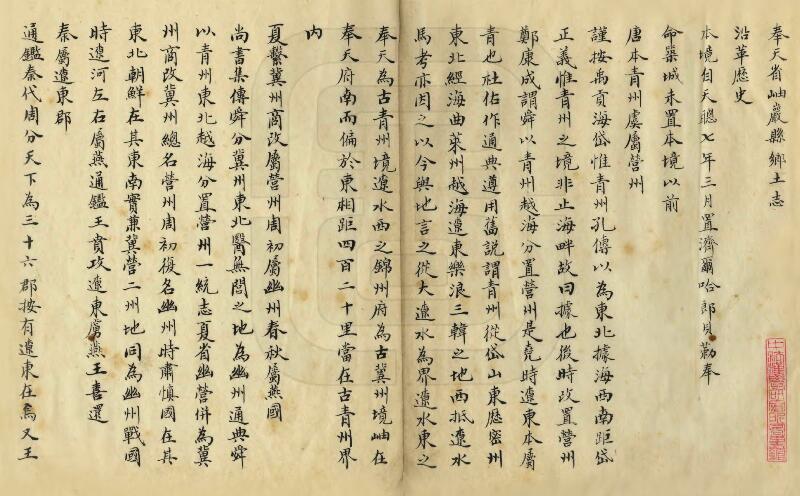 奉天省岫巖縣鄉土志
沿革歷史
本境自天聰七年三月置濟爾哈郎貝勒奉
命築城未置本境以前
唐本青州虞屬營州
謹按禹貢海岱惟青州孔傳以為東北據海西南距岱
正義惟青州之境非止海畔故曰據也後時改置營州
鄭康成謂舜以青州越海分置營州是堯時遼東本屬
青也杜佑作通典遵用舊說謂青州從岱山東歷密州
東北經海曲萊州越海遼東樂浪三韓之地西抵遼水
馬考亦因之以今輿地言之從大遼水為界遼水東之
奉天為古青州境遼水西之錦州府為古冀州境岫在
奉天府南而偏於東相距四百二十里當在古青州界
內
夏繫冀州商改屬營州周初屬幽州春秋屬燕國
尚書集傳舜分冀州東北醫無閭之地為幽州通典舜
以青州東北越海分置營州一統志夏省幽營併為冀
州商改冀州總名營州周初復名幽州時肅慎國在其
東北朝鮮在其東南實兼冀營二州地同為幽州戰國
時遼河左右屬燕通鑑王賁攻遼東虜燕王喜還
秦屬遼東郡
通鑑秦代周分天下為三十六郡按有遼東在焉又王